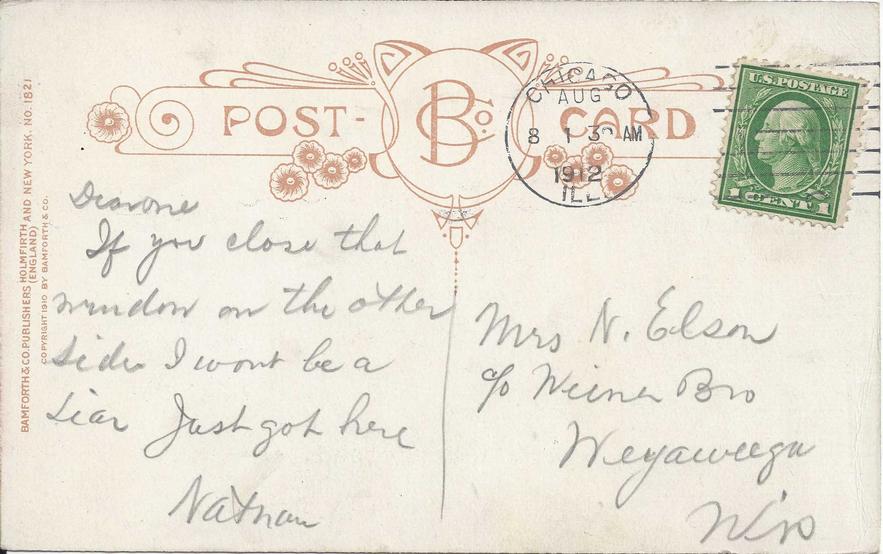 POST-CARD
B Co.
CHICAGO
AUG
8 1 30 AM
1912
ILL.
U.S. POSTAGE
1 CENT 1
BAMFORTH & CO. PUBLISHERS HOLMFIRTH AND NEW YORK. NO. 1821
(ENGLAND)
COPYRIGHT 1910 BY BAMFORTH & CO.
Dearone
If you close that
window on the other
side I wont be a
liar Just got here
Nathan
Mrs N. Elson
c/o Weiner Bro
Weyauwega
Wis